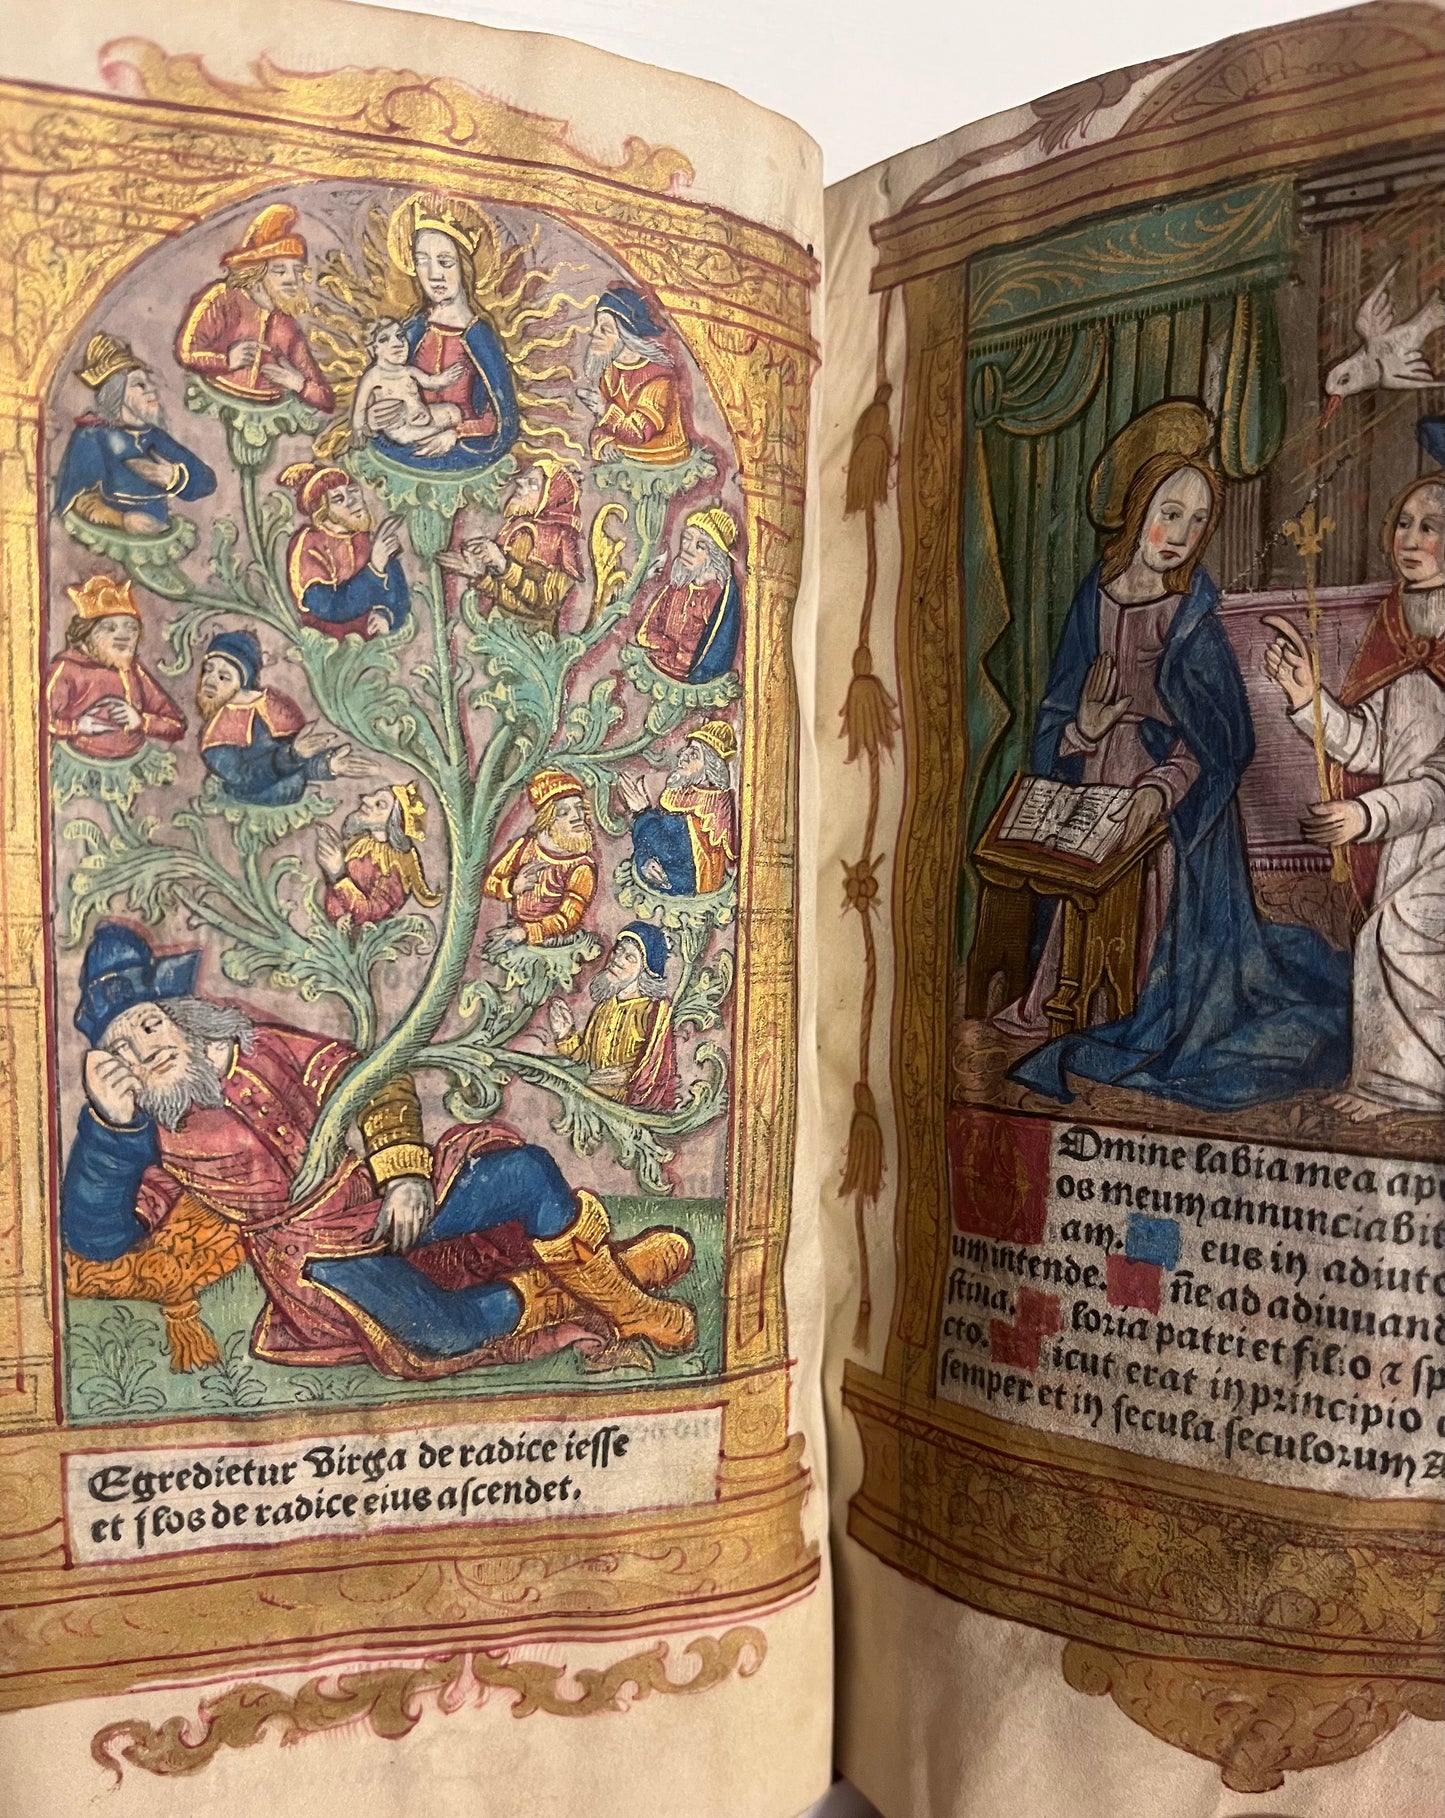 Egredietur Virga de radice iesse
et flos de radice eius ascendet.
Omine labia mea ap
os meum annunciabit
am. eus in adiuto
um intende. n̄e ad adiuuand
stina. loria patri et filio ⁊ sp
cto. icut erat in principio
semper et in secula seculorum